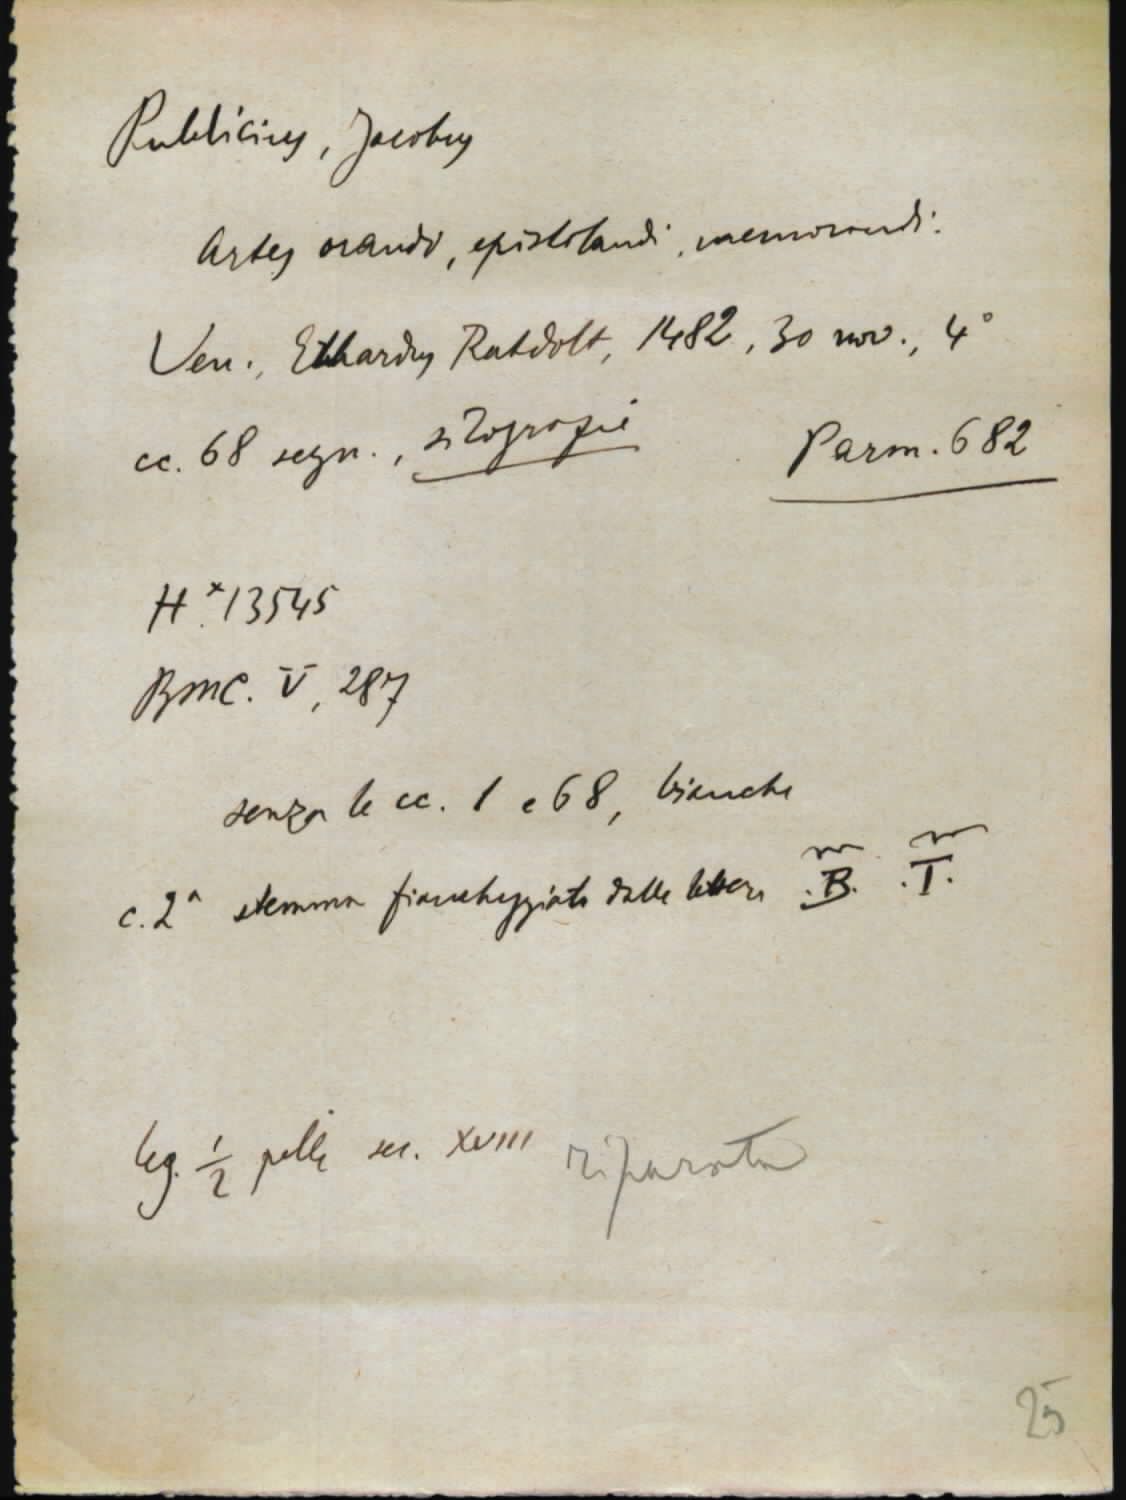 Publicius, Jacobus
Artes orandi, epistolandi, memorandi.
Ven., Erhardus Ratdolt, 1482, 30 nov., 4°
cc. 68 segn., silografie Parm. 682
H x 13545
BMC. V, 287
senza le cc. 1 e 68, bianche
c. 2a stemma fiancheggiato dalle lettere .B. .T.
leg. 1/2 pelle sec. XVIII riparata
25